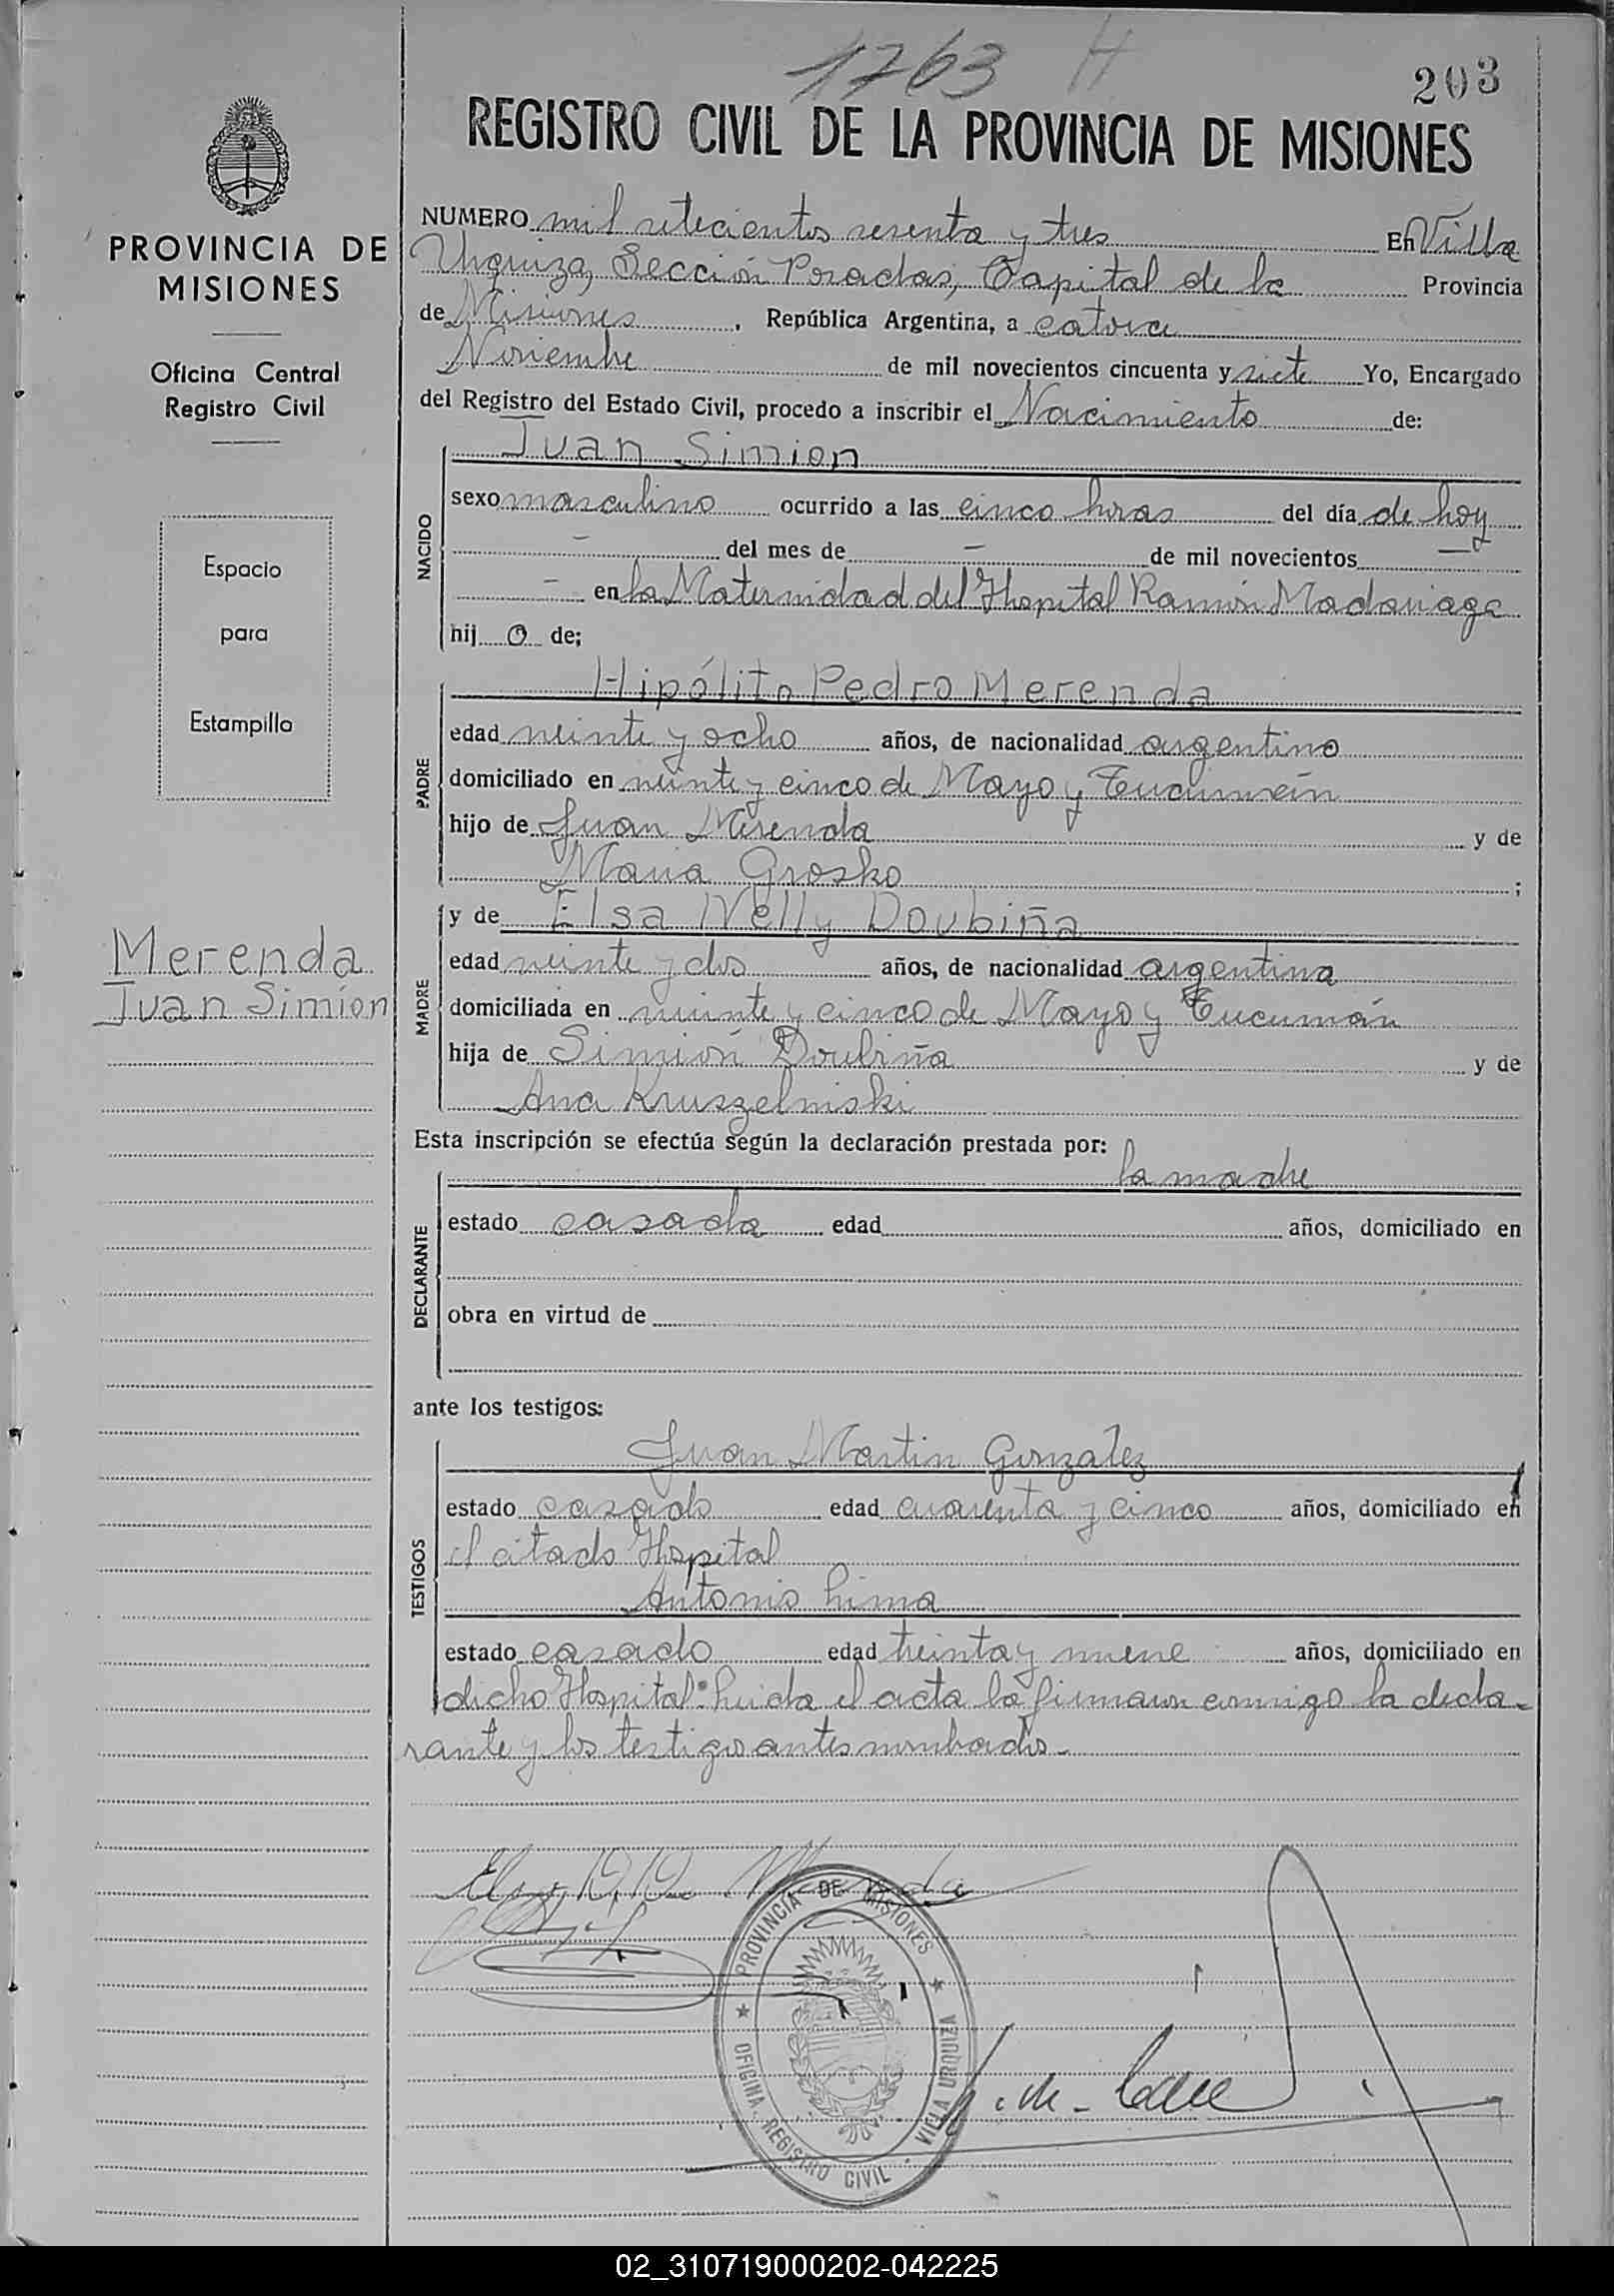 1763 H
203
REGISTRO CIVIL DE LA PROVINCIA DE MISIONES
PROVINCIA DE
MISIONES
Oficina Central
Registro Civil
Espacio
para
Estampilla
Merenda
Juan Simion
NUMERO mil setecientos sesenta y tres En Villa
Urquiza, Sección Posadas, Capital de la Provincia
de Misiones, República Argentina, a catorce
Noviembre de mil novecientos cincuenta y siete Yo, Encargado
del Registro del Estado Civil, procedo a inscribir el Nacimiento de:
NACIDO
Juan Simion
sexo masculino ocurrido a las cinco horas del día de hoy
— del mes de — de mil novecientos —
— en la Maternidad del Hospital Ramón Madariaga
hij o de;
PADRE
Hipólito Pedro Merenda
edad veinte y ocho años, de nacionalidad argentino
domiciliado en veinte y cinco de Mayo y Tucumán
hijo de Juan Merenda y de
Maria Grosko ;
MADRE
y de Elsa Nelly Doubiña
edad veinte y dos años, de nacionalidad argentina
domiciliada en veinte y cinco de Mayo y Tucumán
hija de Simión Doubiña y de
Ana Kruszelniski
Esta inscripción se efectúa según la declaración prestada por:
DECLARANTE
la madre
estado casada edad años, domiciliado en
obra en virtud de
ante los testigos:
TESTIGOS
Juan Martin Gonzalez
estado casado edad cuarenta y cinco años, domiciliado en
el citado Hospital
Antonio Lima
estado casado edad treinta y nueve años, domiciliado en
dicho Hospital. Leida el acta la firmaron conmigo la decla-
rante y los testigos antes nombrados.-
PROVINCIA DE MISIONES
OFICINA REGISTRO CIVIL VILLA URQUIZA
02_310719000202-042225